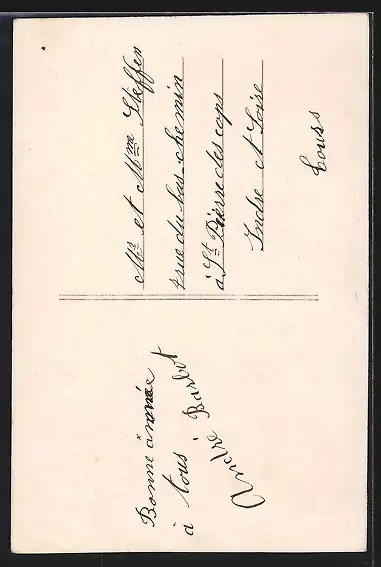 Bonne année
à tous
André Barbot
Mr et Mme Steffen
rue du bas chemin
à St Pierre des cops
Indre et Loire
Tours